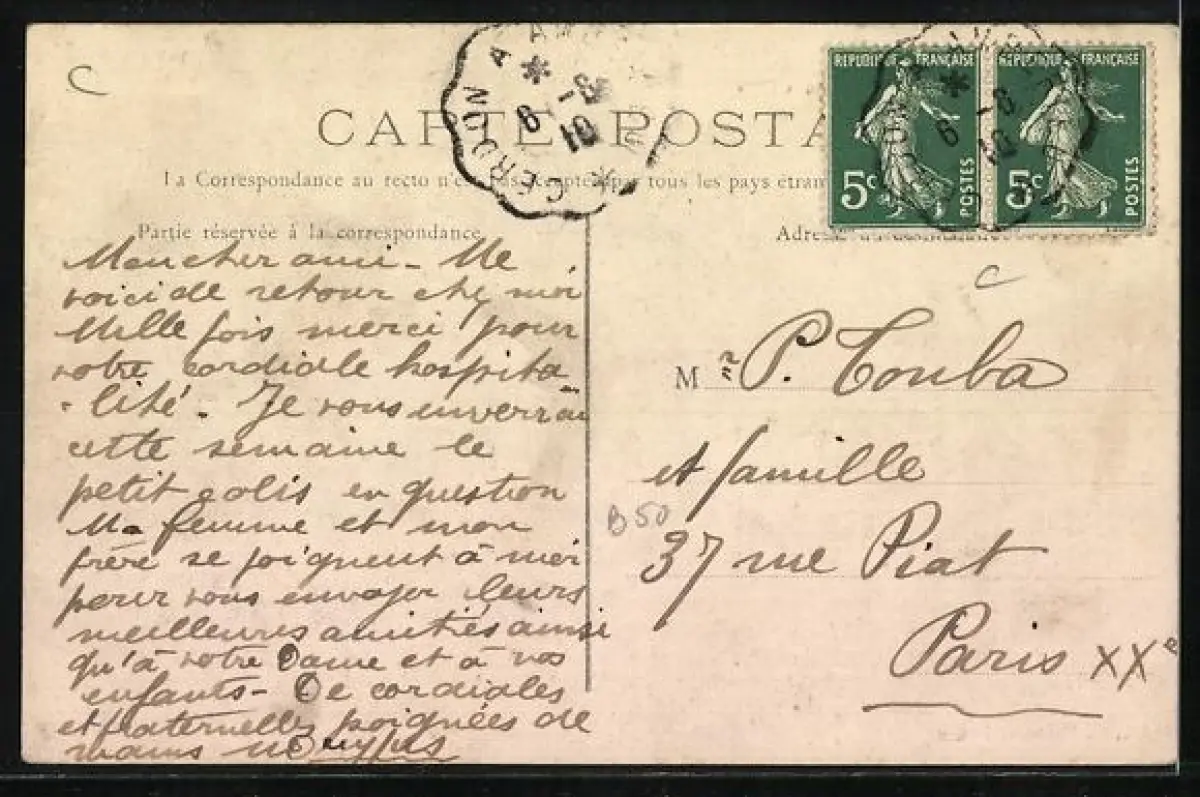 C
CARTE POSTA
CERDON A AM
6 -8
10
REPUBLIQUE FRANÇAISE
5c POSTES
REPUBLIQUE FRANÇAISE
5c POSTES
6 -8
10
La Correspondance au recto n'est pas acceptée par tous les pays étran
Partie réservée à la correspondance
Adresse du destinataire
Mon cher ami - Me
voici de retour chez moi
Mille fois merci pour
votre cordiale hospita
-lité. Je vous enverrai
cette semaine le
petit colis en question
Ma femme et mon
frère se joignent à moi
pour vous envoyer leurs
meilleures amitiés ainsi
qu'à votre Dame et à vos
enfants - De cordiales
et fraternelles poignées de
mains
C
Mr P. Touba
et famille
B50
37 rue Piat
Paris XXe